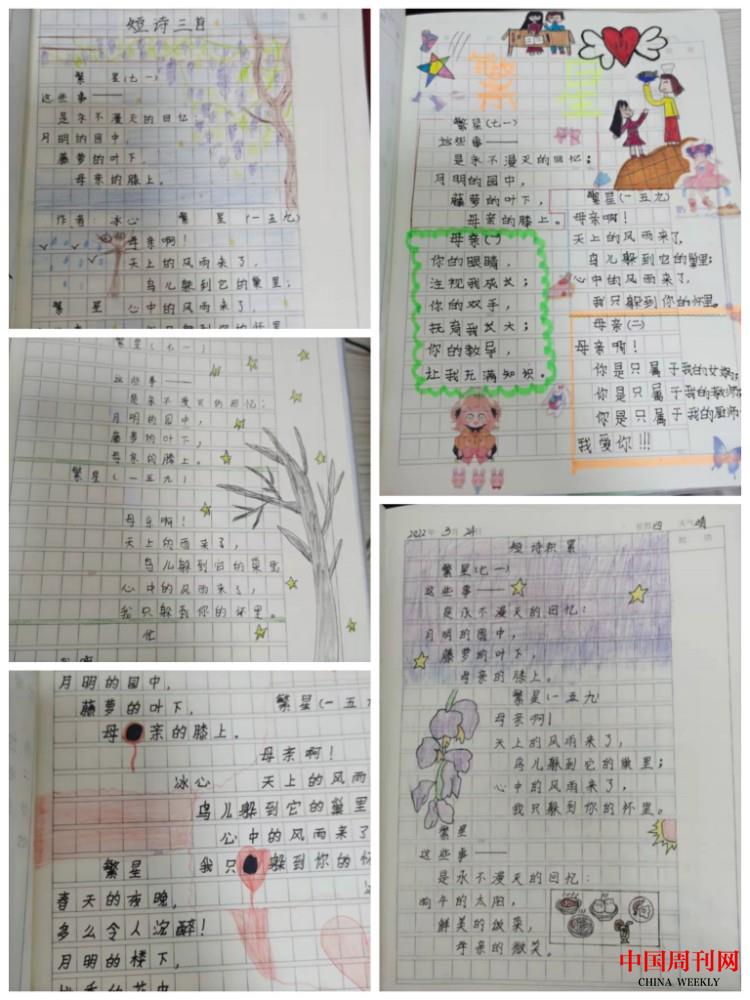 短诗三首
繁星(七一)
这些事——
是永不漫灭的回忆
月明的园中
藤萝的叶下
母亲的膝上。
作者:冰心 繁星(一五九)
母亲啊!
天上的风雨来了,
鸟儿躲到它的巢里;
繁星 心中的风雨来了,
繁星(七一)
这些事——
是永不漫灭的回忆;
月明的园中,
藤萝的叶下,
母亲的膝上。
繁星(一五九)
母亲啊!
天上的雨来了,
鸟儿躲到它的巢里
心中的风雨来了,
我只躲到你的怀里。
月明的园中,
藤萝的叶下,
母亲的膝上。
繁星(一五九
母亲啊!
冰心 天上的风雨
鸟儿躲到它的巢里
心中的风雨来了
繁星 我只躲到你的怀
春天的夜晚,
多么令人沉醉!
月明的楼下,
繁星
繁星(七一)
这些事——
是永不漫灭的回忆;
月明的园中,
藤萝的叶下,
母亲的膝上。
繁星(一五九)
母亲啊!
天上的风雨来了,
鸟儿躲到它的巢里;
心中的风雨来了,
我只躲到你的怀里。
母亲(一)
你的眼睛,
注视我成长;
你的双手,
抚育我长大;
你的教导,
让我充满知识。
母亲(二)
母亲啊!
你是只属于我的
你是只属于我的教师
你是只属于我的厨师
我爱你!!!
2022年3月24日 星期四 天气晴
短诗积累
繁星(七一)
这些事——
是永不漫灭的回忆:
月明的园中,
藤萝的叶下,
母亲的膝上。
繁星(一五九
母亲啊!
天上的风雨来了,
鸟儿躲到它的巢里;
心中的风雨来了,
我只躲到你的怀里。
繁星
这些事——
是永不漫灭的回忆:
晌午的太阳,
鲜美的饭菜,
母亲的微笑。
中国周刊网
CHINA WEEKLY